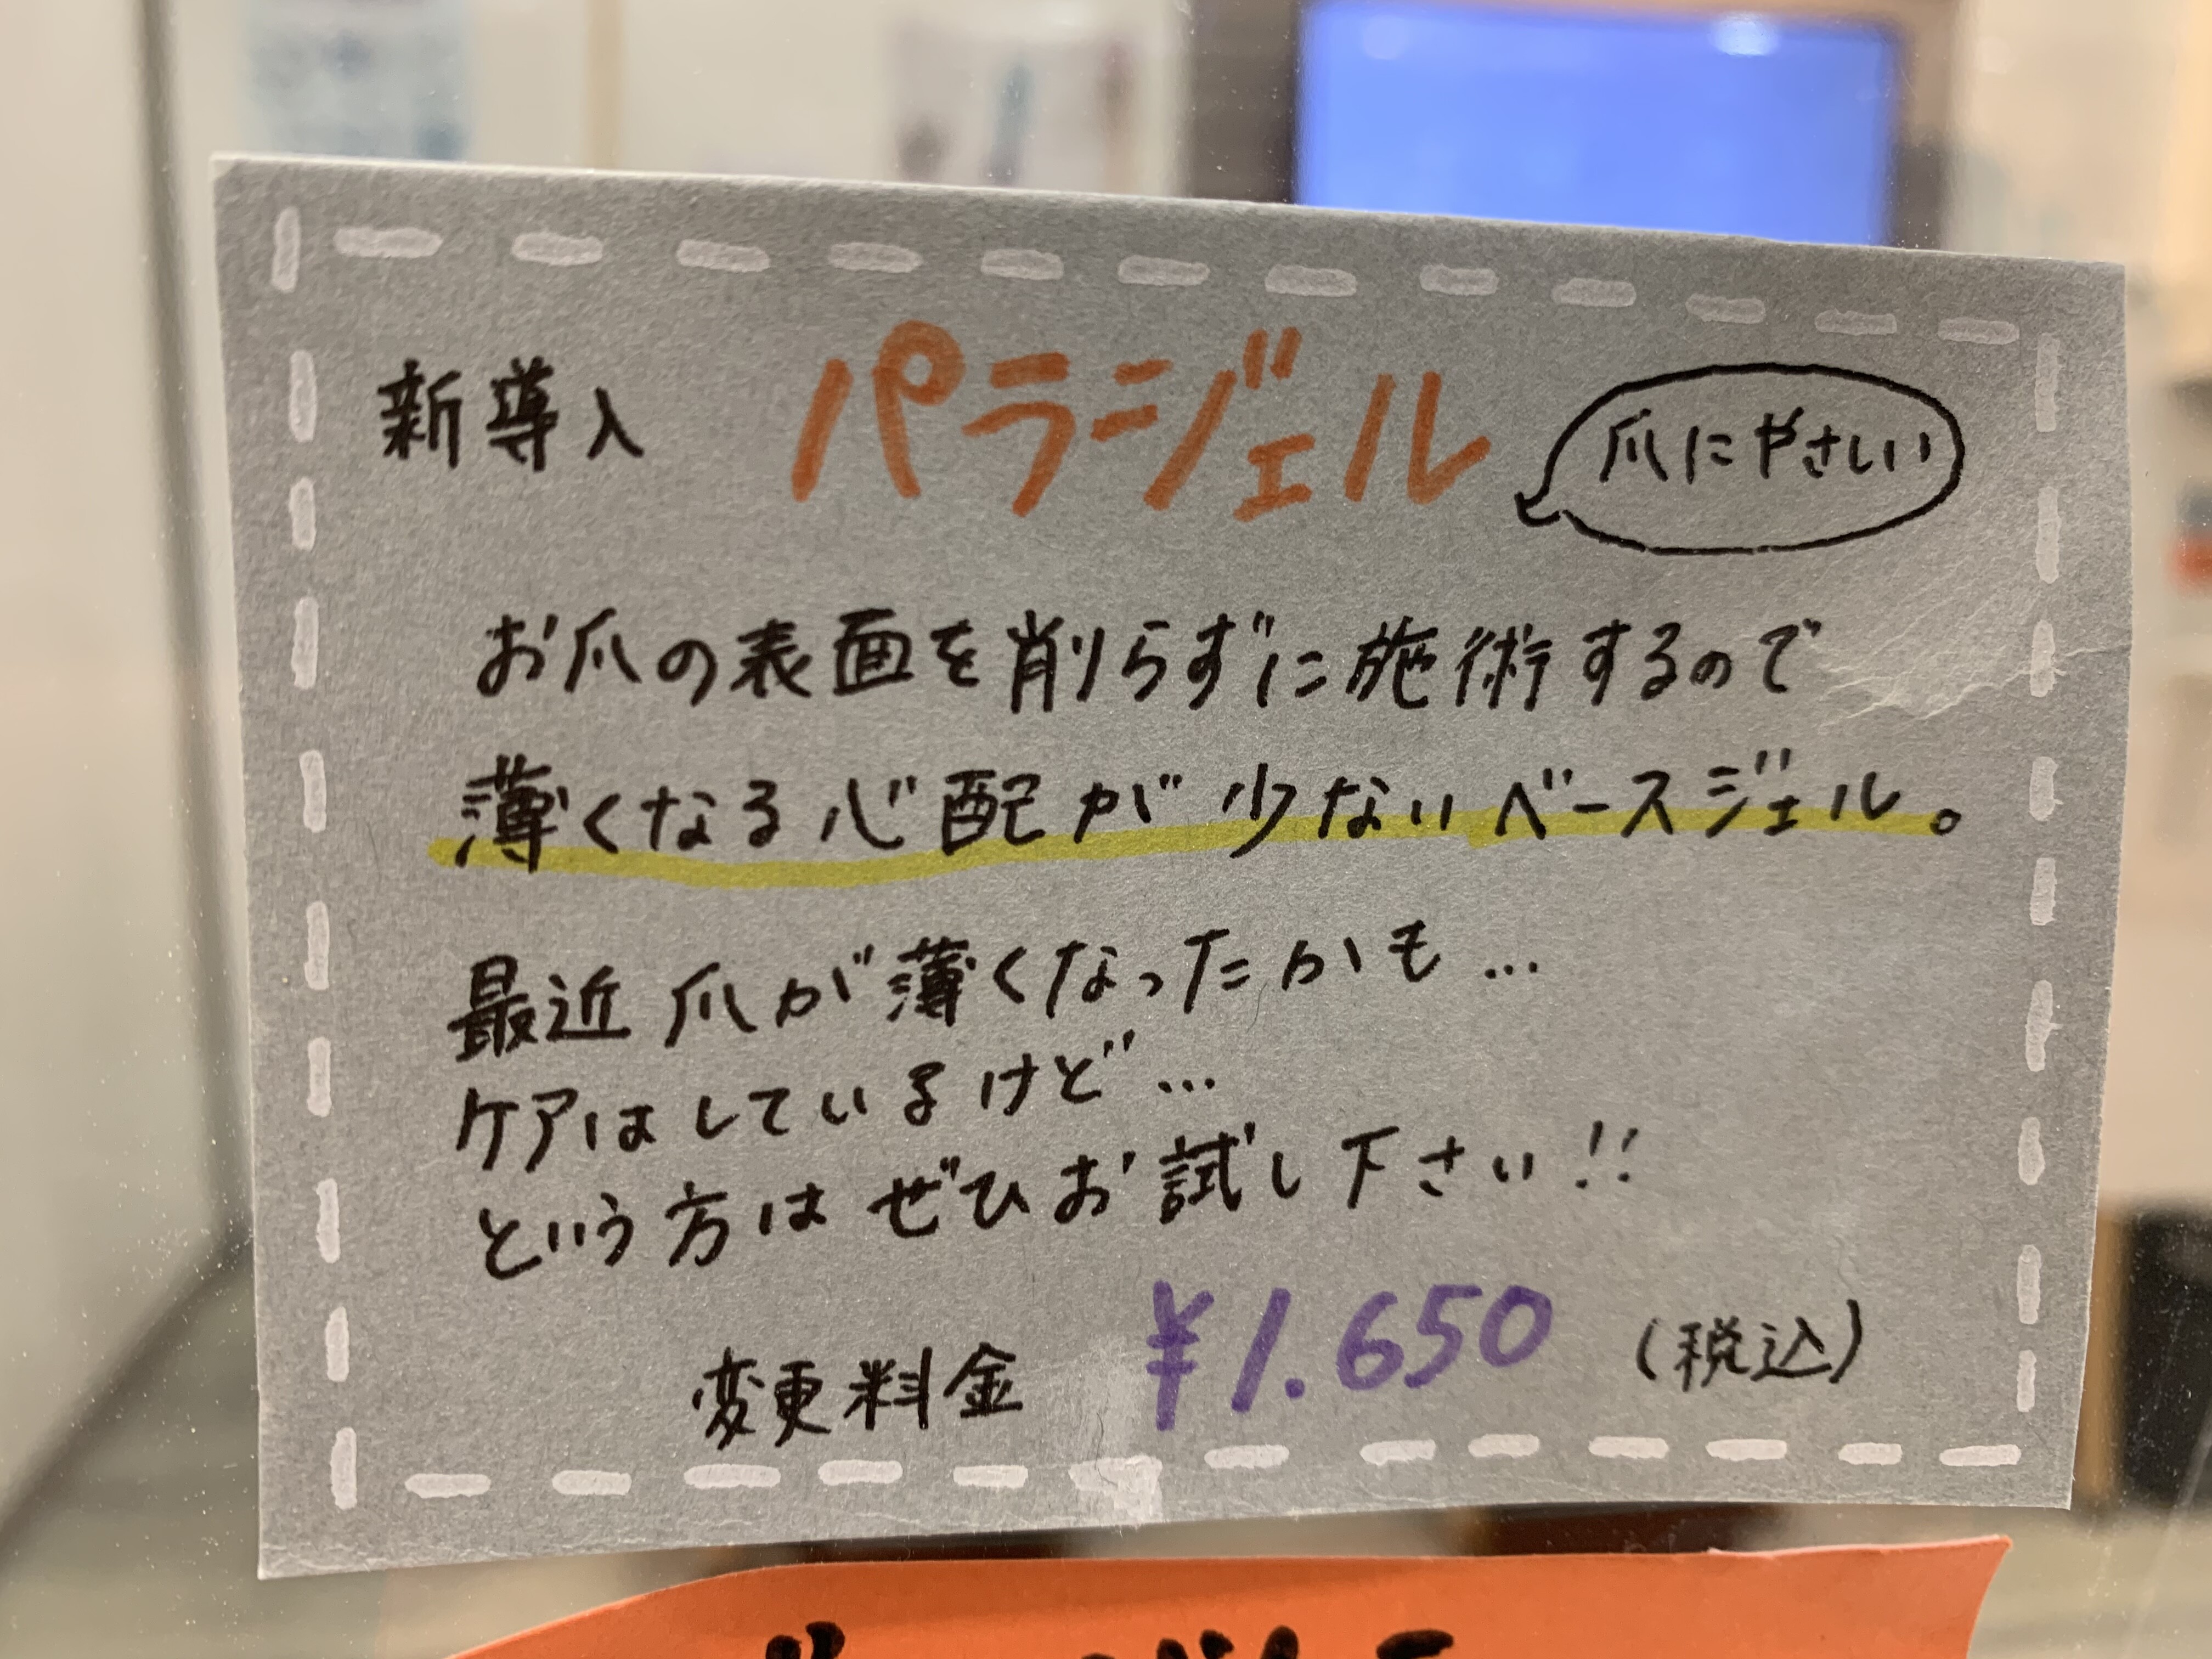 新導入 パラジェル 爪にやさしい
お爪の表面を削らずに施術するので
薄くなる心配が少ないベースジェル。
最近 爪が薄くなったかも…
ケアはしているけど…
という方は ぜひお試し下さい!!
変更料金 ¥1.650 (税込)